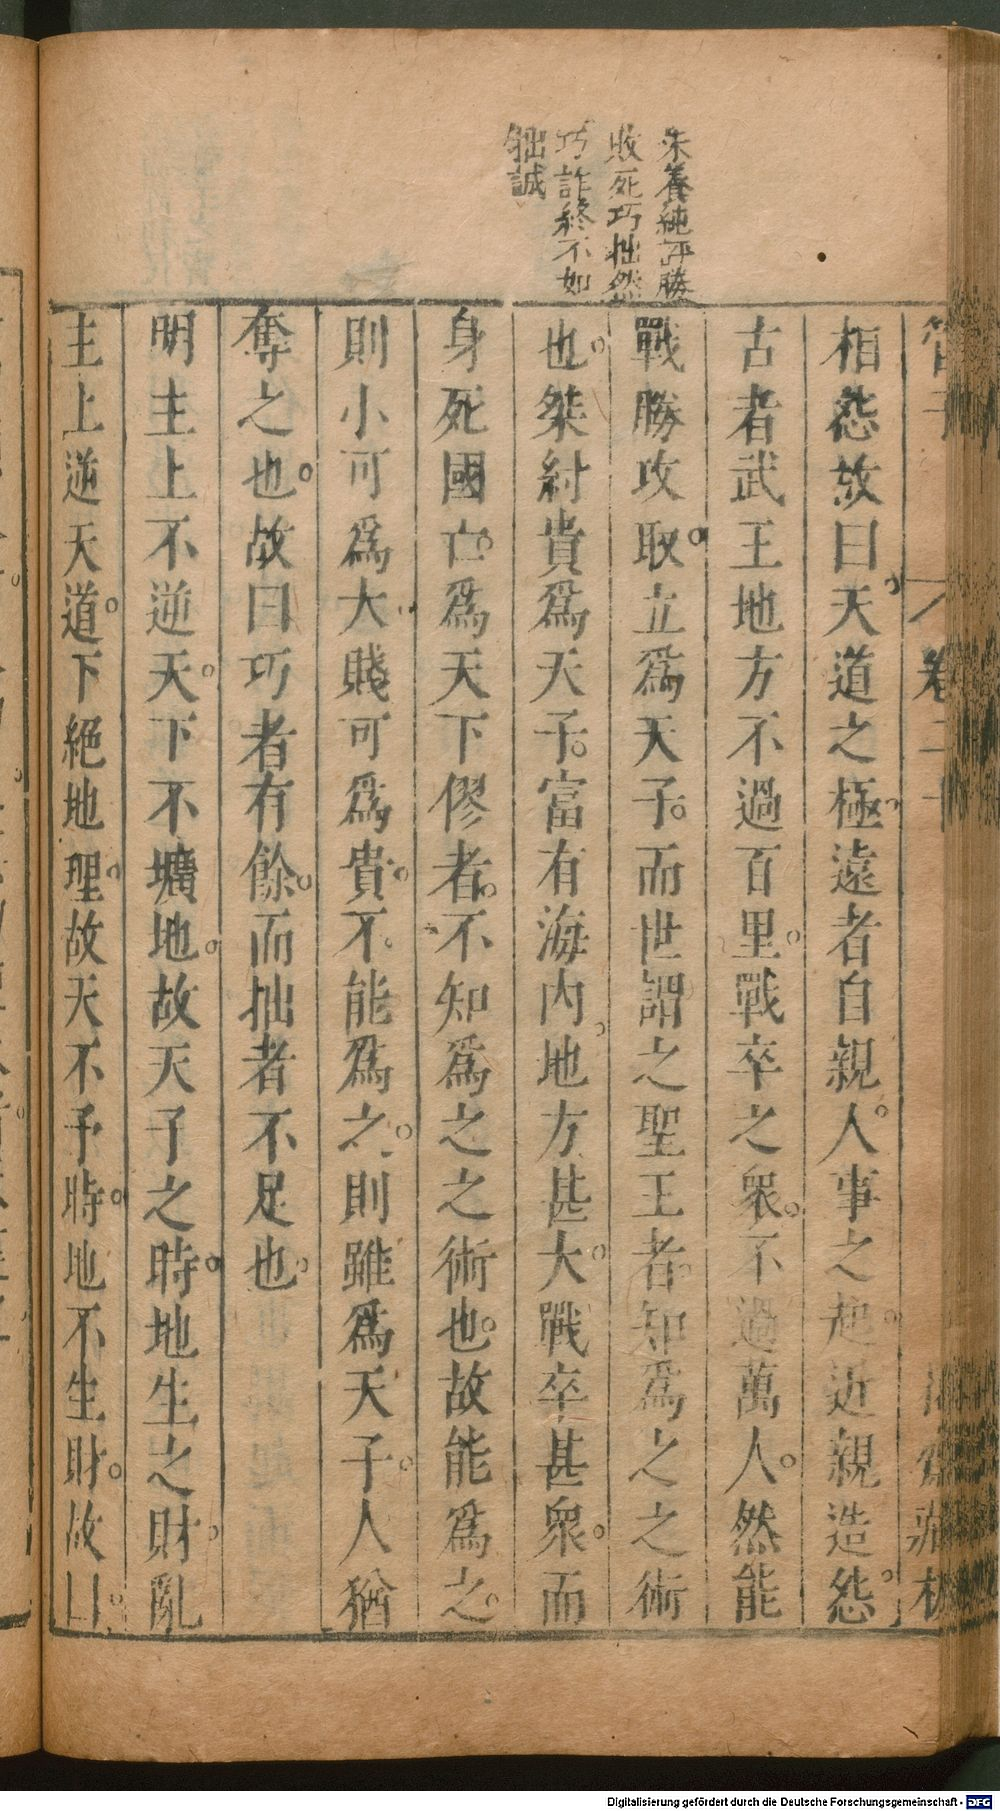 朱養純評勝
敗死巧拙然
巧詐終不如
拙誠
管子 卷二十 花齋藏板
相怨故曰天道之極遠者自親人事之起近親造怨
古者武王地方不過百里戰卒之衆不過萬人然能
戰勝攻取立爲天子而世謂之聖王者知爲之之術
也桀紂貴爲天子富有海內地方甚大戰卒甚衆而
身死國亡爲天下僇者不知爲之之術也故能爲之
則小可爲大賤可爲貴不能爲之則雖爲天子人猶
奪之也故曰巧者有餘而拙者不足也
明主上不逆天下不壙地故天予之時地生之財亂
主上逆天道下絕地理故天不予時地不生財故曰
Digitalisierung gefördert durch die Deutsche Forschungsgemeinschaft - DFG